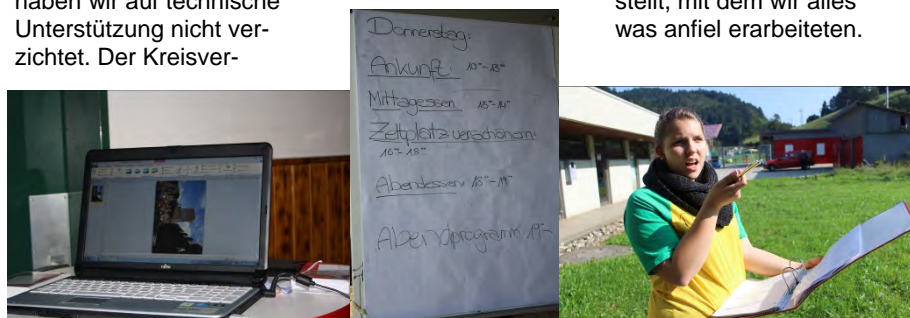 haben wir auf technische
Unterstützung nicht ver-
zichtet. Der Kreisver-
stellt, mit dem wir alles
was anfiel erarbeiteten.
Donnerstag:
Ankunft:
Mittagessen
Zeltplatz verschönern:
16⁰⁰-18⁰⁰
Abendessen 18⁰⁰-19⁰⁰
Abendprogramm 19⁰⁰-